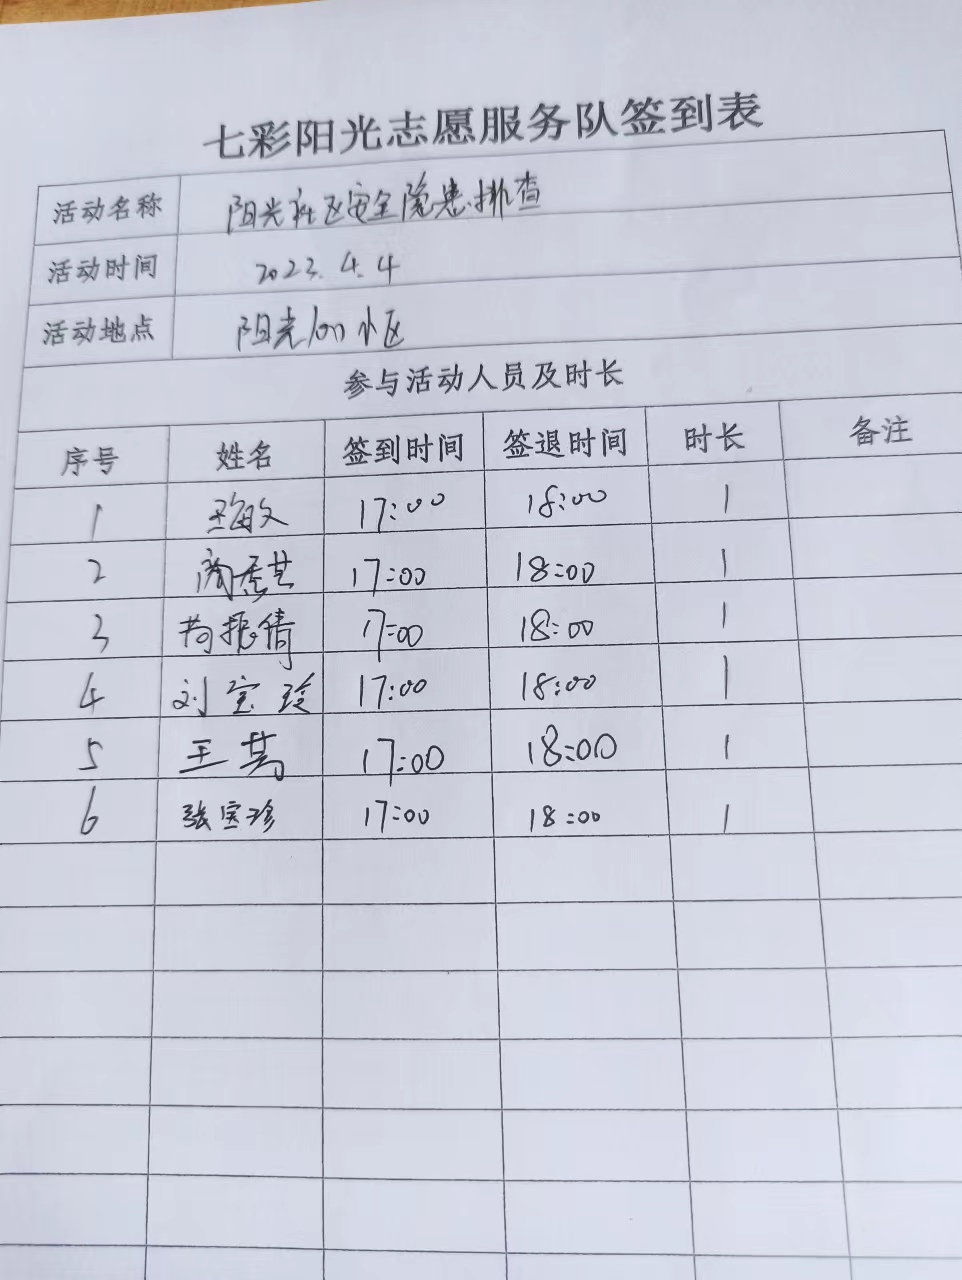 七彩阳光志愿服务队签到表
活动名称 阳光社区安全隐患排查
活动时间 2023.4.4
活动地点 阳光100小区
参与活动人员及时长
序号 姓名 签到时间 签退时间 时长 备注
1 17:00 18:00 1
2 17:00 18:00 1
3 17:00 18:00 1
4 刘宝玲 17:00 18:00 1
5 王 17:00 18:00 1
6 张宝珍 17:00 18:00 1